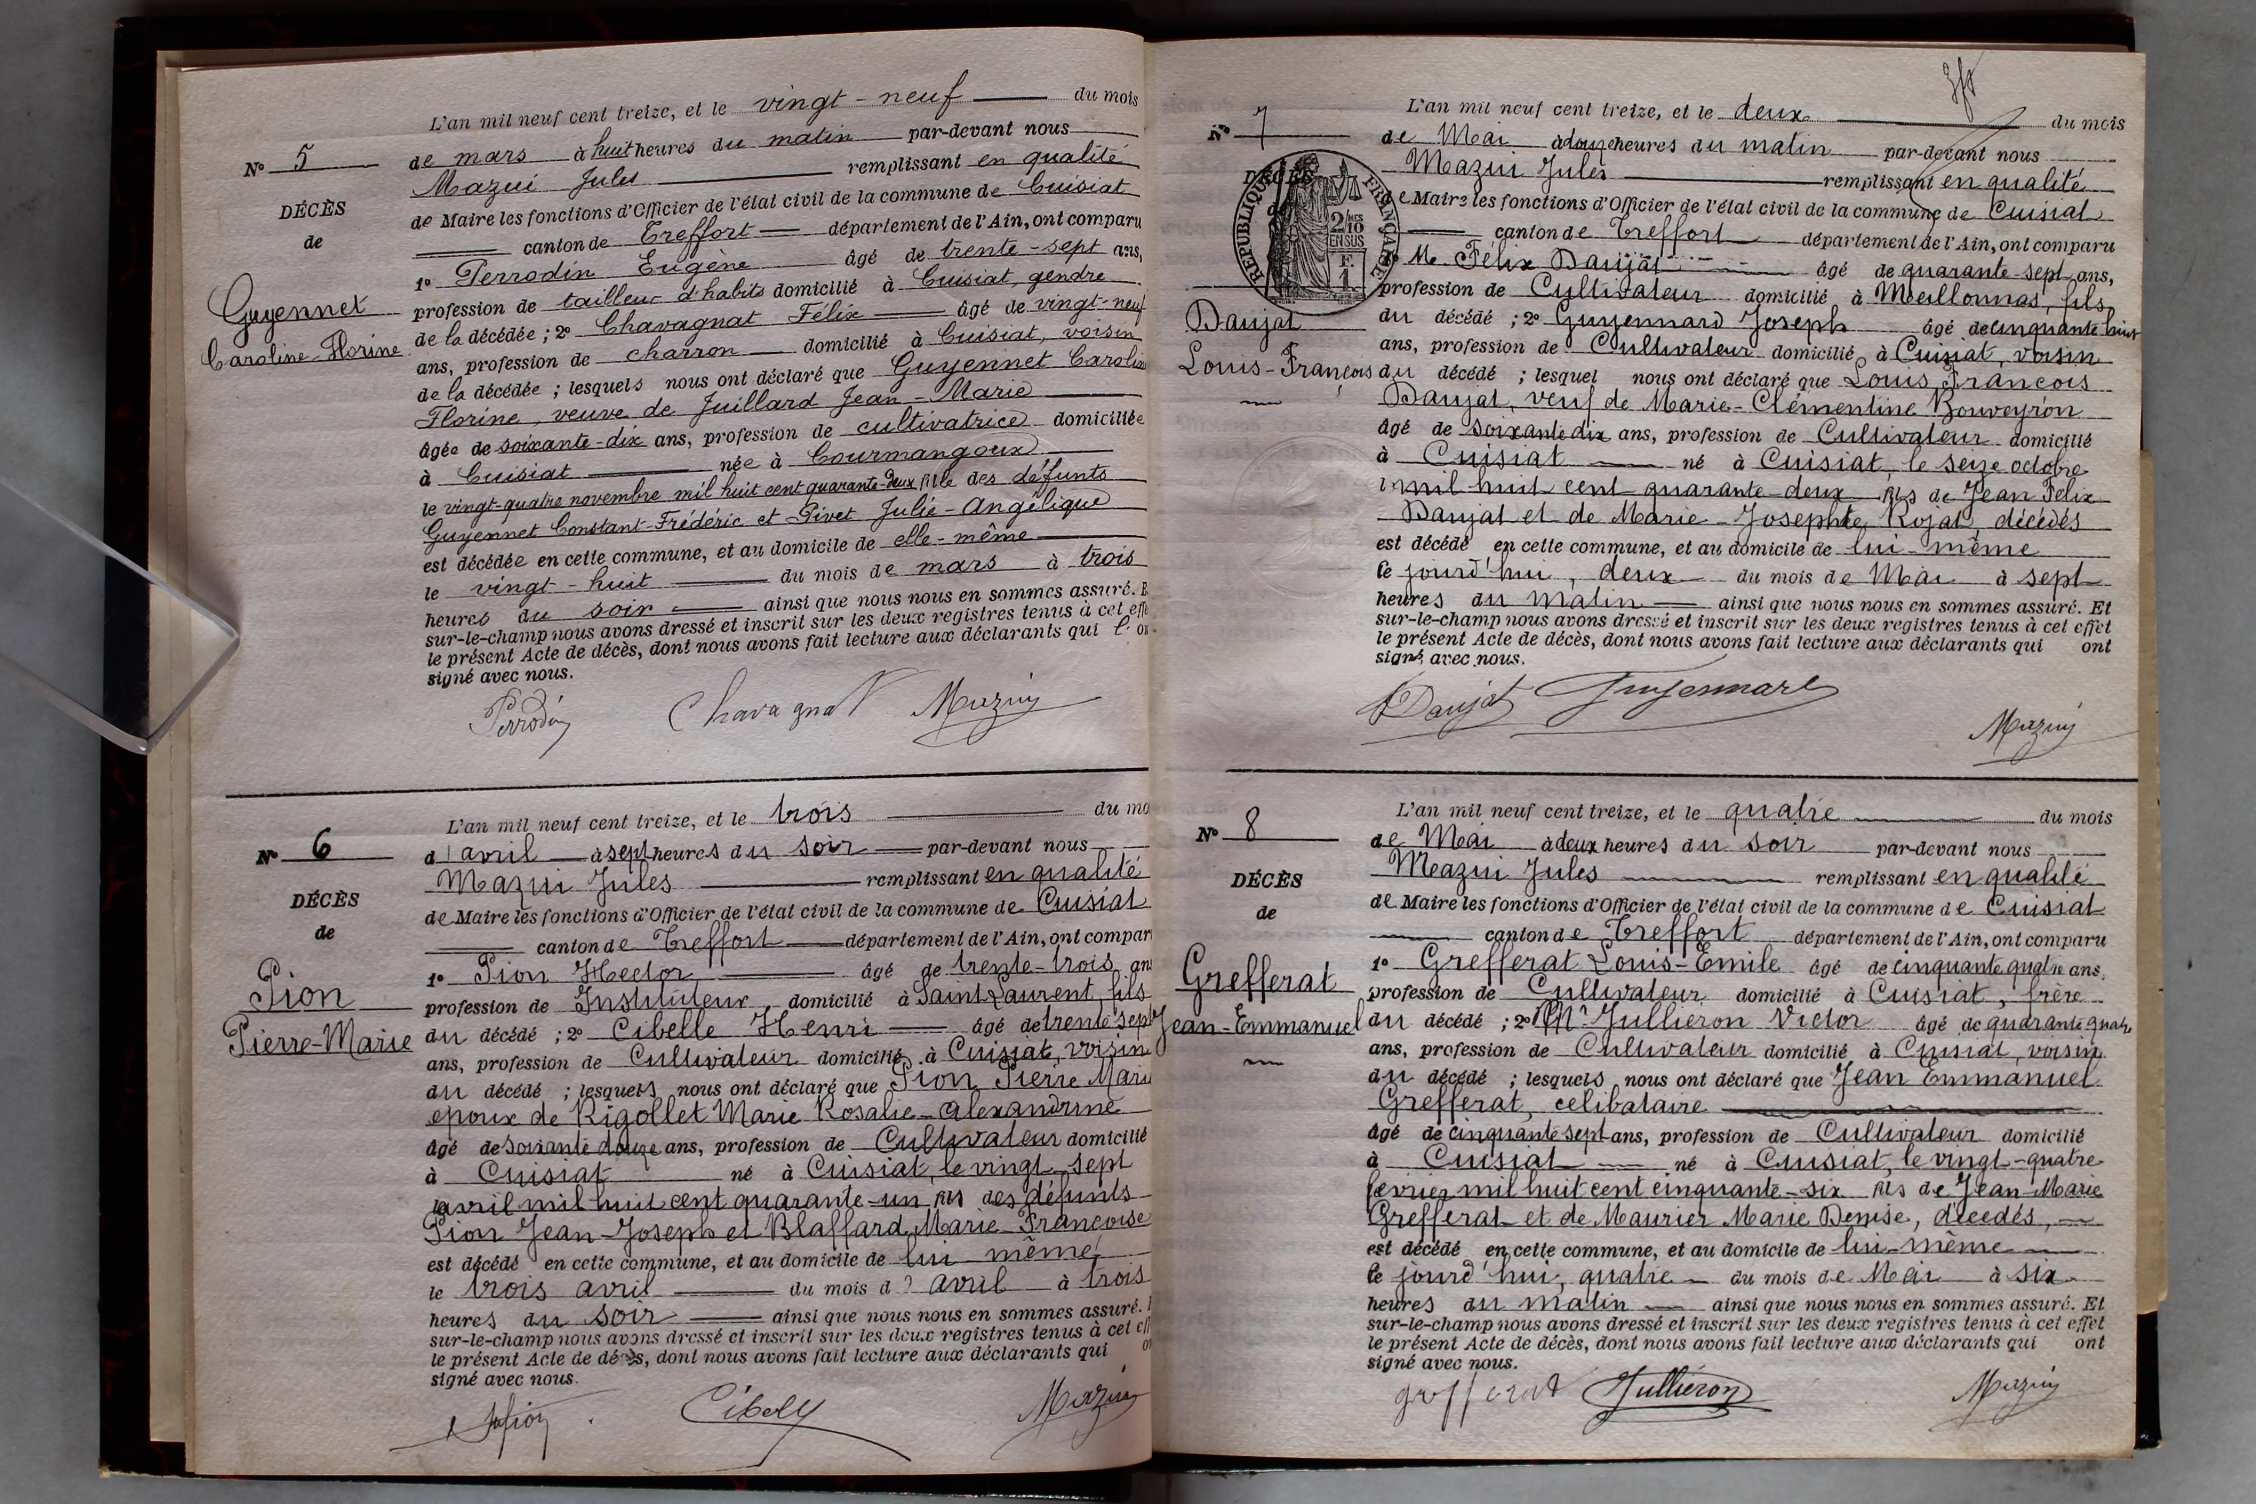 L'an mil neuf cent treize, et le vingt-neuf du mois
N° 5
de mars à huit heures du matin par-devant nous
Mazui Jules remplissant en qualité
DÉCÈS
de Maire les fonctions d'Officier de l'état civil de la commune de Cuisiat
de
canton de Treffort département de l'Ain, ont comparu
1° Perrodin Eugène âgé de trente-sept ans,
Guyennet
profession de tailleur d'habits domicilié à Cuisiat, gendre
de la décédée ; 2° Chavagnat Félix âgé de vingt-neuf
Caroline-Florine
ans, profession de charron domicilié à Cuisiat, voisin
de la décédée ; lesquels nous ont déclaré que Guyennet Caroline
Florine, veuve de Juillard Jean-Marie
âgée de soixante-dix ans, profession de cultivatrice domiciliée
à Cuisiat née à Courmangoux
le vingt-quatre novembre mil huit cent quarante-deux fille des défunts
Guyennet Constant-Frédéric et Pivet Julie-Angélique
est décédée en cette commune, et au domicile de elle-même
le vingt-huit du mois de mars à trois
heures du soir ainsi que nous nous en sommes assuré. E
sur-le-champ nous avons dressé et inscrit sur les deux registres tenus à cet effe
le présent Acte de décès, dont nous avons fait lecture aux déclarants qui l' on
signé avec nous.
Perrodin Chavagnat Mazuy
L'an mil neuf cent treize, et le trois du mo
N° 6
d'avril à sept heures du soir par-devant nous
Mazui Jules remplissant en qualité
DÉCÈS
de Maire les fonctions d'Officier de l'état civil de la commune de Cuisiat
de
canton de Treffort département de l'Ain, ont compar
1° Pion Hector âgé de trente-trois ans
Pion
profession de Instituteur domicilié à Saint Laurent, fils
Pierre-Marie
du décédé ; 2° Cibelle Henri âgé de trente sept
ans, profession de Cultivateur domicilié à Cuisiat, voisin
du décédé ; lesquels nous ont déclaré que Pion Pierre Marie
epoux de Rigollet Marie Rosalie-Alexandrine
âgé de soixante douze ans, profession de Cultivateur domicilié
à Cuisiat né à Cuisiat, le vingt-sept
avril mil huit cent quarante-un fils des défunts
Pion Jean-Joseph et Blaffard Marie-Françoise
est décédé en cette commune, et au domicile de lui même
le trois avril du mois d' avril à trois
heures du soir ainsi que nous nous en sommes assuré.
sur-le-champ nous avons dressé et inscrit sur les deux registres tenus à cet eff
le présent Acte de décès, dont nous avons fait lecture aux déclarants qui on
signé avec nous.
Cibelly Mazuy
L'an mil neuf cent treize, et le deux du mois
N° 7
de Mai à douze heures du matin par-devant nous
Mazui Jules remplissant en qualité
DÉCÈS
de
RÉPUBLIQUE FRANÇAISE
2/10 EN SUS
F. 1
de Maire les fonctions d'Officier de l'état civil de la commune de Cuisiat
canton de Treffort département de l'Ain, ont comparu
1° Mr Félix Daujat âgé de quarante-sept ans,
profession de Cultivateur domicilié à Meillonnas, fils
Daujat
du décédé ; 2° Guyennard Joseph âgé de cinquante huit
ans, profession de Cultivateur domicilié à Cuisiat, voisin
Louis-François
du décédé ; lesquel nous ont déclaré que Louis François
Daujat, veuf de Marie-Clémentine Bouveyron
âgé de soixante dix ans, profession de Cultivateur domicilié
à Cuisiat né à Cuisiat, le seize octobre
mil huit cent quarante-deux fils de Jean Félix
Daujat et de Marie-Josephte Rojat, décédés
est décédé en cette commune, et au domicile de lui-même
le jourd'hui, deux du mois de Mai à sept
heures du matin ainsi que nous nous en sommes assuré. Et
sur-le-champ nous avons dressé et inscrit sur les deux registres tenus à cet effet
le présent Acte de décès, dont nous avons fait lecture aux déclarants qui ont
signé avec nous.
Daujat Guyennard
Mazuy
L'an mil neuf cent treize, et le quatre du mois
N° 8
de Mai à deux heures du soir par-devant nous
Mazui Jules remplissant en qualité
DÉCÈS
de Maire les fonctions d'Officier de l'état civil de la commune de Cuisiat
de
canton de Treffort département de l'Ain, ont comparu
1° Grefferat Louis-Emile âgé de cinquante quatre ans,
Grefferat
profession de Cultivateur domicilié à Cuisiat, frère
Jean-Emmanuel
du décédé ; 2° Mr Jullieron Victor âgé de quarante quatre
ans, profession de Cultivateur domicilié à Cuisiat, voisin
du décédé ; lesquels nous ont déclaré que Jean Emmanuel
Grefferat, celibataire
âgé de cinquante sept ans, profession de Cultivateur domicilié
à Cuisiat né à Cuisiat, le vingt-quatre
février mil huit cent cinquante-six fils de Jean-Marie
Grefferat et de Maurier Marie Denise, décedés,
est décédé en cette commune, et au domicile de lui-même
le jourd'hui, quatre du mois de Mai à six
heures du matin ainsi que nous nous en sommes assuré. Et
sur-le-champ nous avons dressé et inscrit sur les deux registres tenus à cet effet
le présent Acte de décès, dont nous avons fait lecture aux déclarants qui ont
signé avec nous.
grefferat Jullieron Mazuy